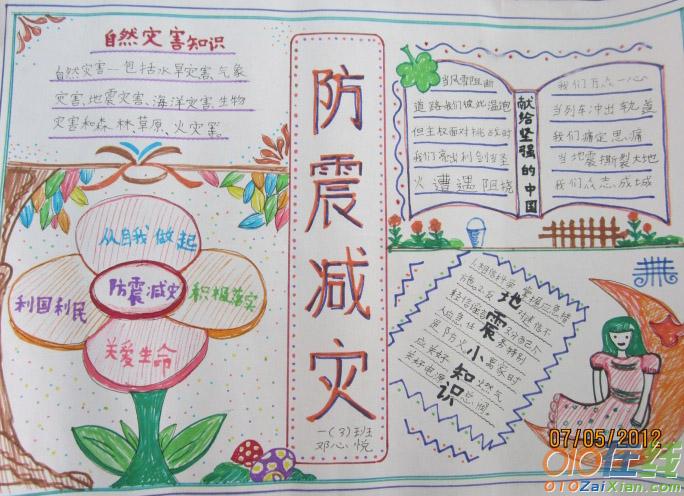 自然灾害知识
自然灾害—包括水旱灾害,气象
灾害,地震灾害、海洋灾害,生物
灾害和森林、草原、火灾害。
从自我做起
利国利民
防震减灾
积极落实
关爱生命
防震减灾
一(3)班
邓心悦
献给坚强的中国
当风雪阻断
道路我们彼此温抱
但主权面对挑战时
我们亮出利剑当圣
火遭遇阻挠
我们万众一心
当列车冲出轨道
我们痛定思痛
当地震撕裂大地
我们众志成城
地震小知识
1.相信科学
掌握应急措
轻信谣言
07/05/2012
010在线
010ZaiXian.com